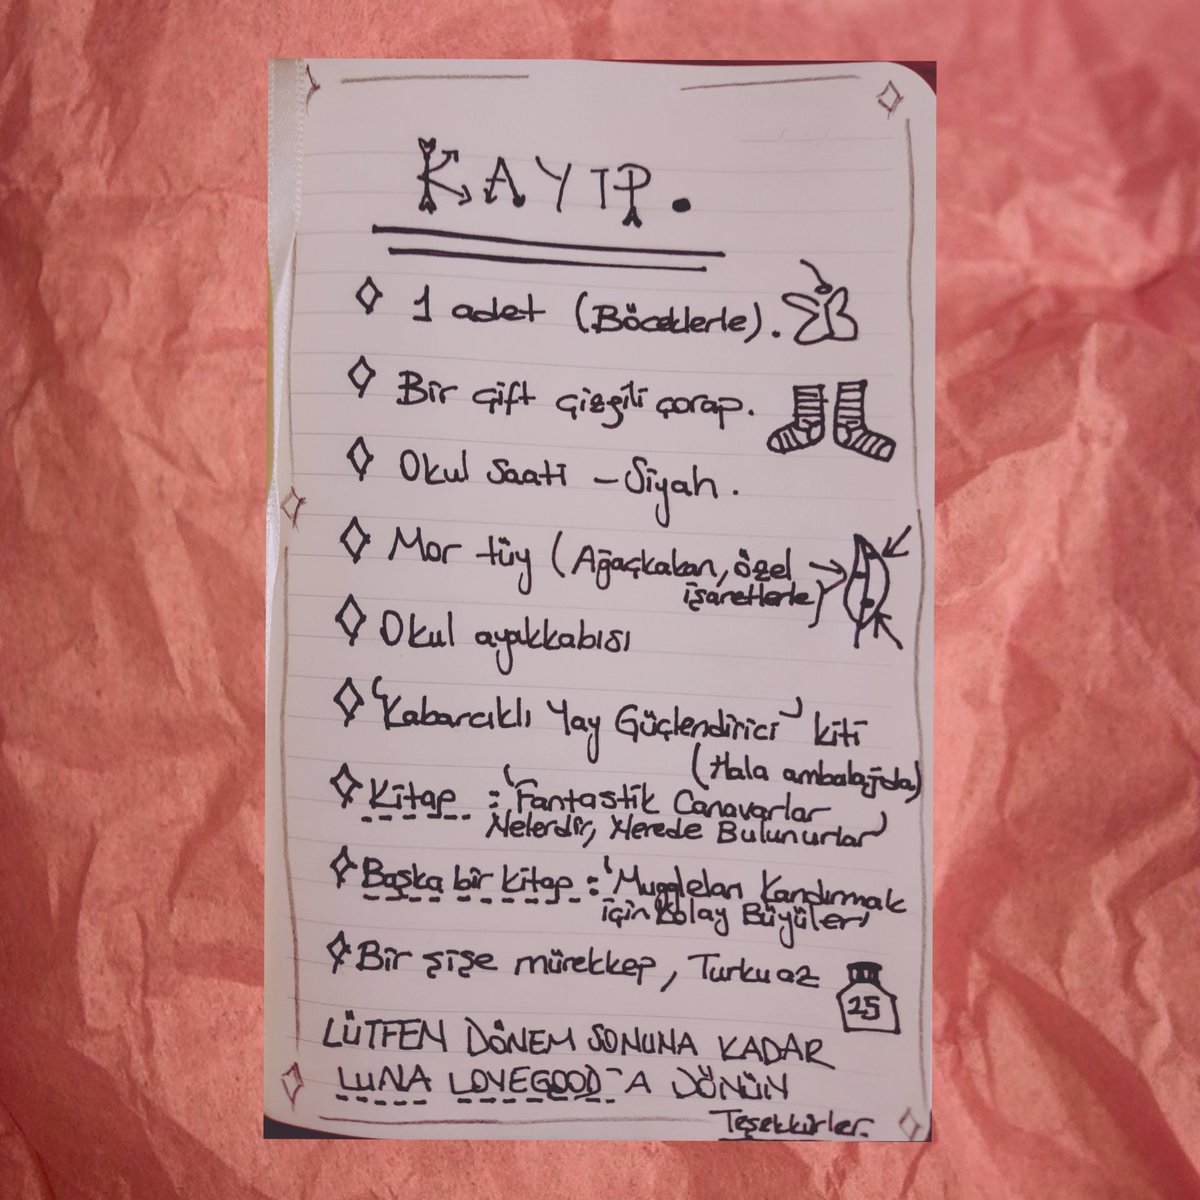 KAYIP.
1 adet (Böceklerle).
Bir çift çizgili çorap.
Okul saati – Siyah.
Mor tüy (Ağaçkakan, özel
işaretlerle)
Okul ayakkabısı
'Kabarcıklı Yay Güçlendirici' kiti
(Hala ambalajda)
Kitap : 'Fantastik Canavarlar
Nelerdir, Nerede Bulunurlar'
Başka bir kitap : 'Muggleları Kandırmak
için Kolay Büyüler'
Bir şişe mürekkep, Turkuaz
25
LÜTFEN DÖNEM SONUNA KADAR
LUNA LOVEGOOD'A DÖNÜN
Teşekkürler.